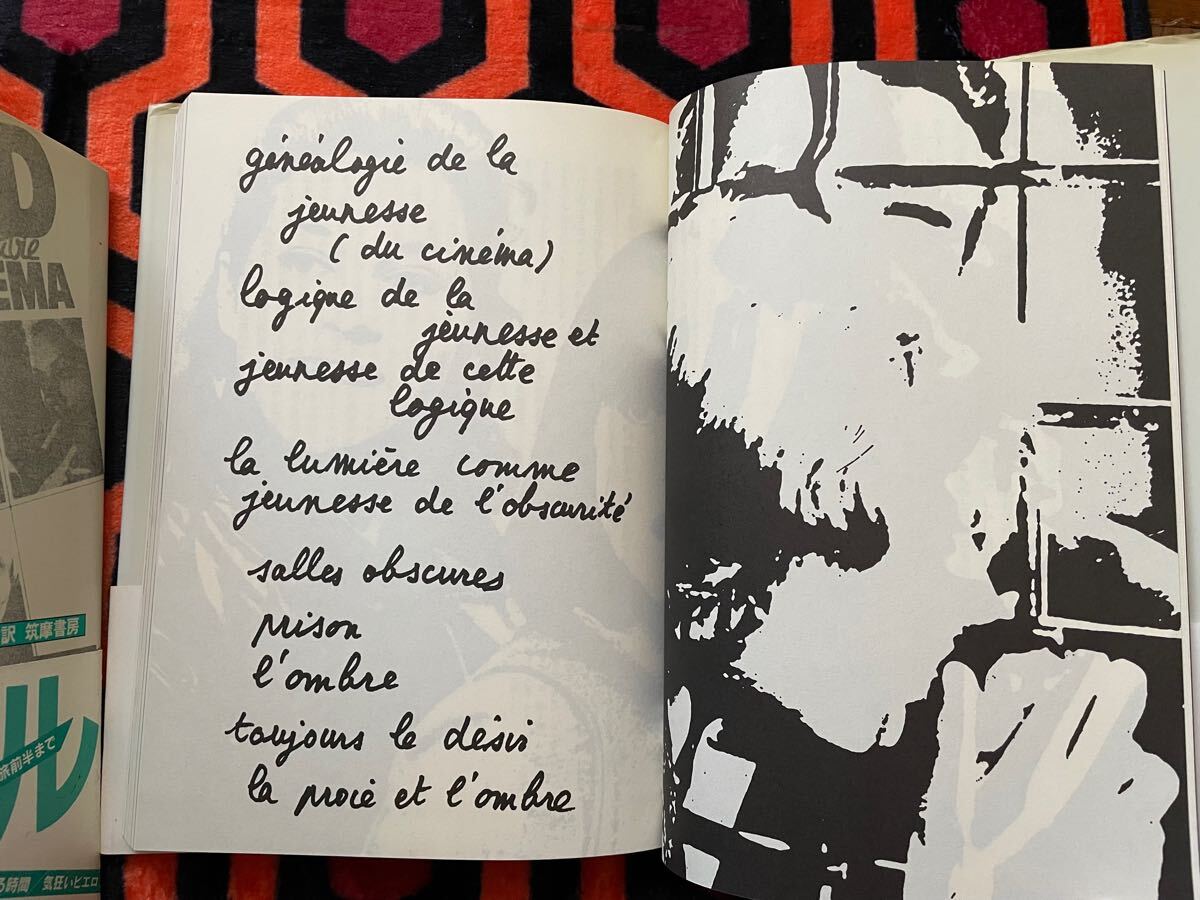 D
EMA
訳 筑摩書房
ル
旅前半まで
る時間/気狂いピエロ
généalogie de la
jeunesse
(du cinéma)
logique de la
jeunesse et
jeunesse de cette
logique
la lumière comme
jeunesse de l'obscurité
salles obscures
prison
l'ombre
toujours le désir
la proie et l'ombre